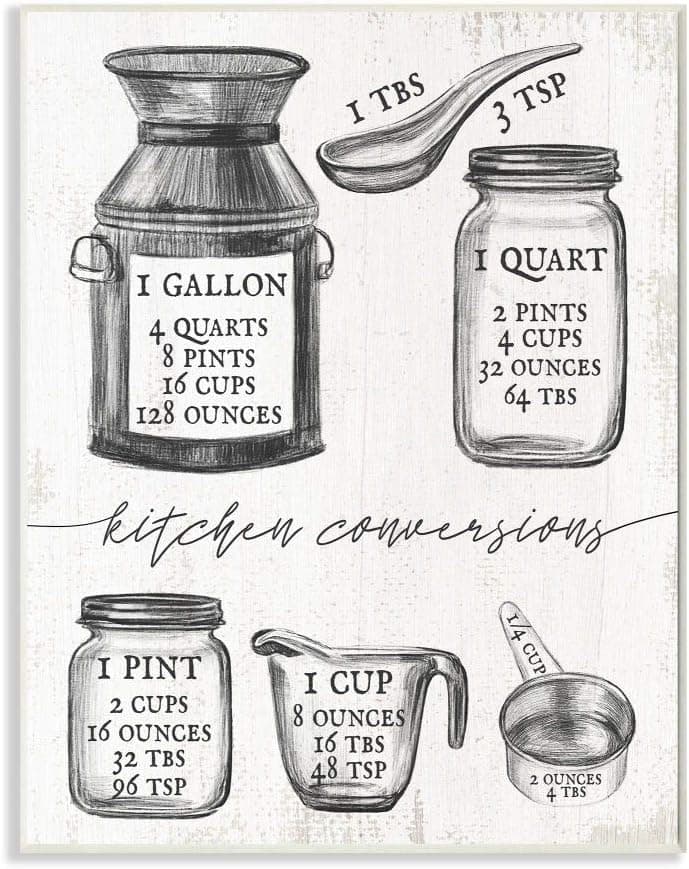 1 TBS
3 TSP
1 GALLON
4 QUARTS
8 PINTS
16 CUPS
128 OUNCES
1 QUART
2 PINTS
4 CUPS
32 OUNCES
64 TBS
kitchen conversions
1 PINT
2 CUPS
16 OUNCES
32 TBS
96 TSP
1 CUP
8 OUNCES
16 TBS
48 TSP
1/4 CUP
2 OUNCES
4 TBS